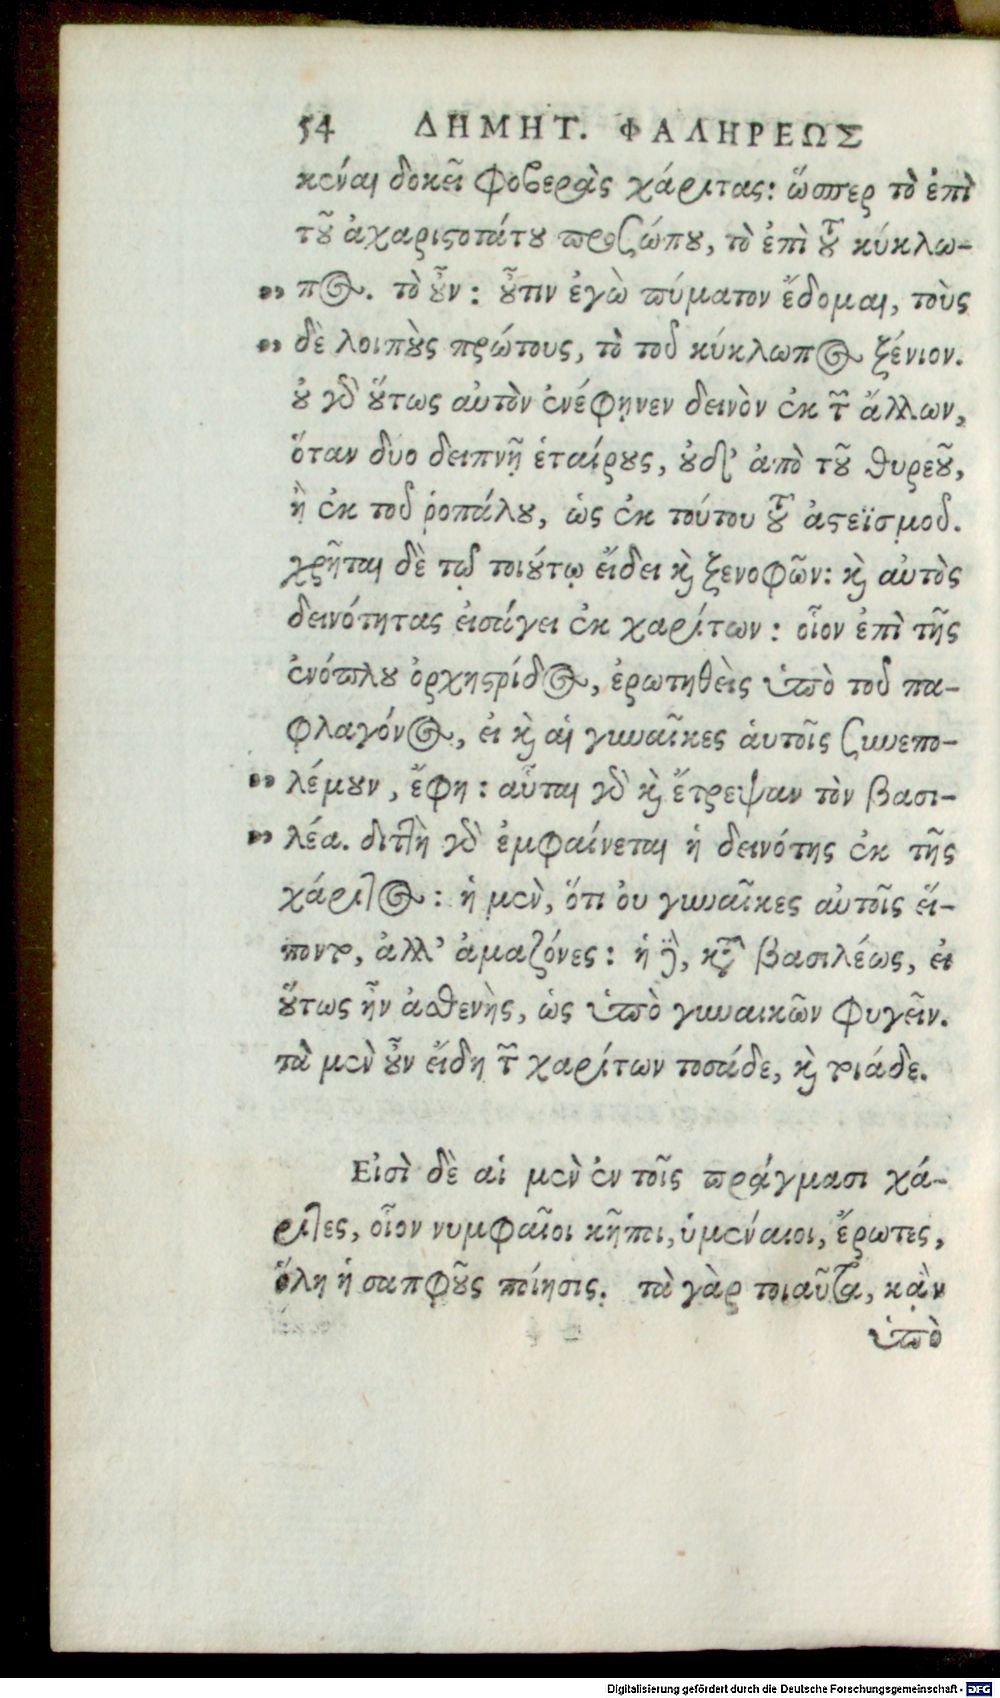 54 ΔΗΜΗΤ. ΦΑΛΗΡΕΩΣ
κέναι δοκεῖ φοβερὰς χάριτας: ὥσπερ τὸ ἐπὶ
τοῦ ἀχαριστοτάτου προσώπου, τὸ ἐπὶ τοῦ κύκλω-
„ πος. τὸ οὖν: οὖτιν ἐγὼ πύματον ἔδομαι, τοὺς
„ δὲ λοιποὺς πρώτους, τὸ τοῦ κύκλωπος ξένιον.
οὐ γὰρ οὕτως αὐτὸν ἐνέφηνεν δεινὸν ἐκ τῶν ἄλλων,
ὅταν δύο δειπνῇ ἑταίρους, οὐδ' ἀπὸ τοῦ θυρεοῦ,
ἢ ἐκ τοῦ ῥοπάλου, ὡς ἐκ τούτου τοῦ ἀστεϊσμοῦ.
χρῆται δὲ τῷ τοιούτῳ εἴδει καὶ ξενοφῶν: καὶ αὐτὸς
δεινότητας εἰσάγει ἐκ χαρίτων: οἷον ἐπὶ τῆς
ἐνόπλου ὀρχηστρίδος, ἐρωτηθεὶς ὑπὸ τοῦ πα-
φλαγόνος, εἰ καὶ αἱ γυναῖκες ἁυτοῖς συνεπο-
„ λέμουν, ἔφη: αὗται γὰρ καὶ ἔτρεψαν τὸν βασι-
„ λέα. διττὴ γὰρ ἐμφαίνεται ἡ δεινότης ἐκ τῆς
χάριτος: ἡ μὲν, ὅτι ὀυ γυναῖκες αὐτοῖς εἵ-
ποντο, ἀλλ' ἀμαζόνες: ἡ δὲ, κατὰ βασιλέως, εἰ
οὕτως ἦν ἀσθενὴς, ὡς ὑπὸ γυναικῶν φυγεῖν.
τὰ μὲν οὖν εἴδη τῶν χαρίτων τοσάδε, καὶ τοιάδε.
Εἰσὶ δὲ αἱ μὲν ἐν τοῖς πράγμασι χά-
ριτες, οἷον νυμφαῖοι κῆποι, ὑμέναιοι, ἔρωτες,
ὅλη ἡ σαπφοῦς ποίησις. τὰ γὰρ τοιαῦτα, κἂν
ὑπὸ
Digitalisierung gefördert durch die Deutsche Forschungsgemeinschaft - DFG